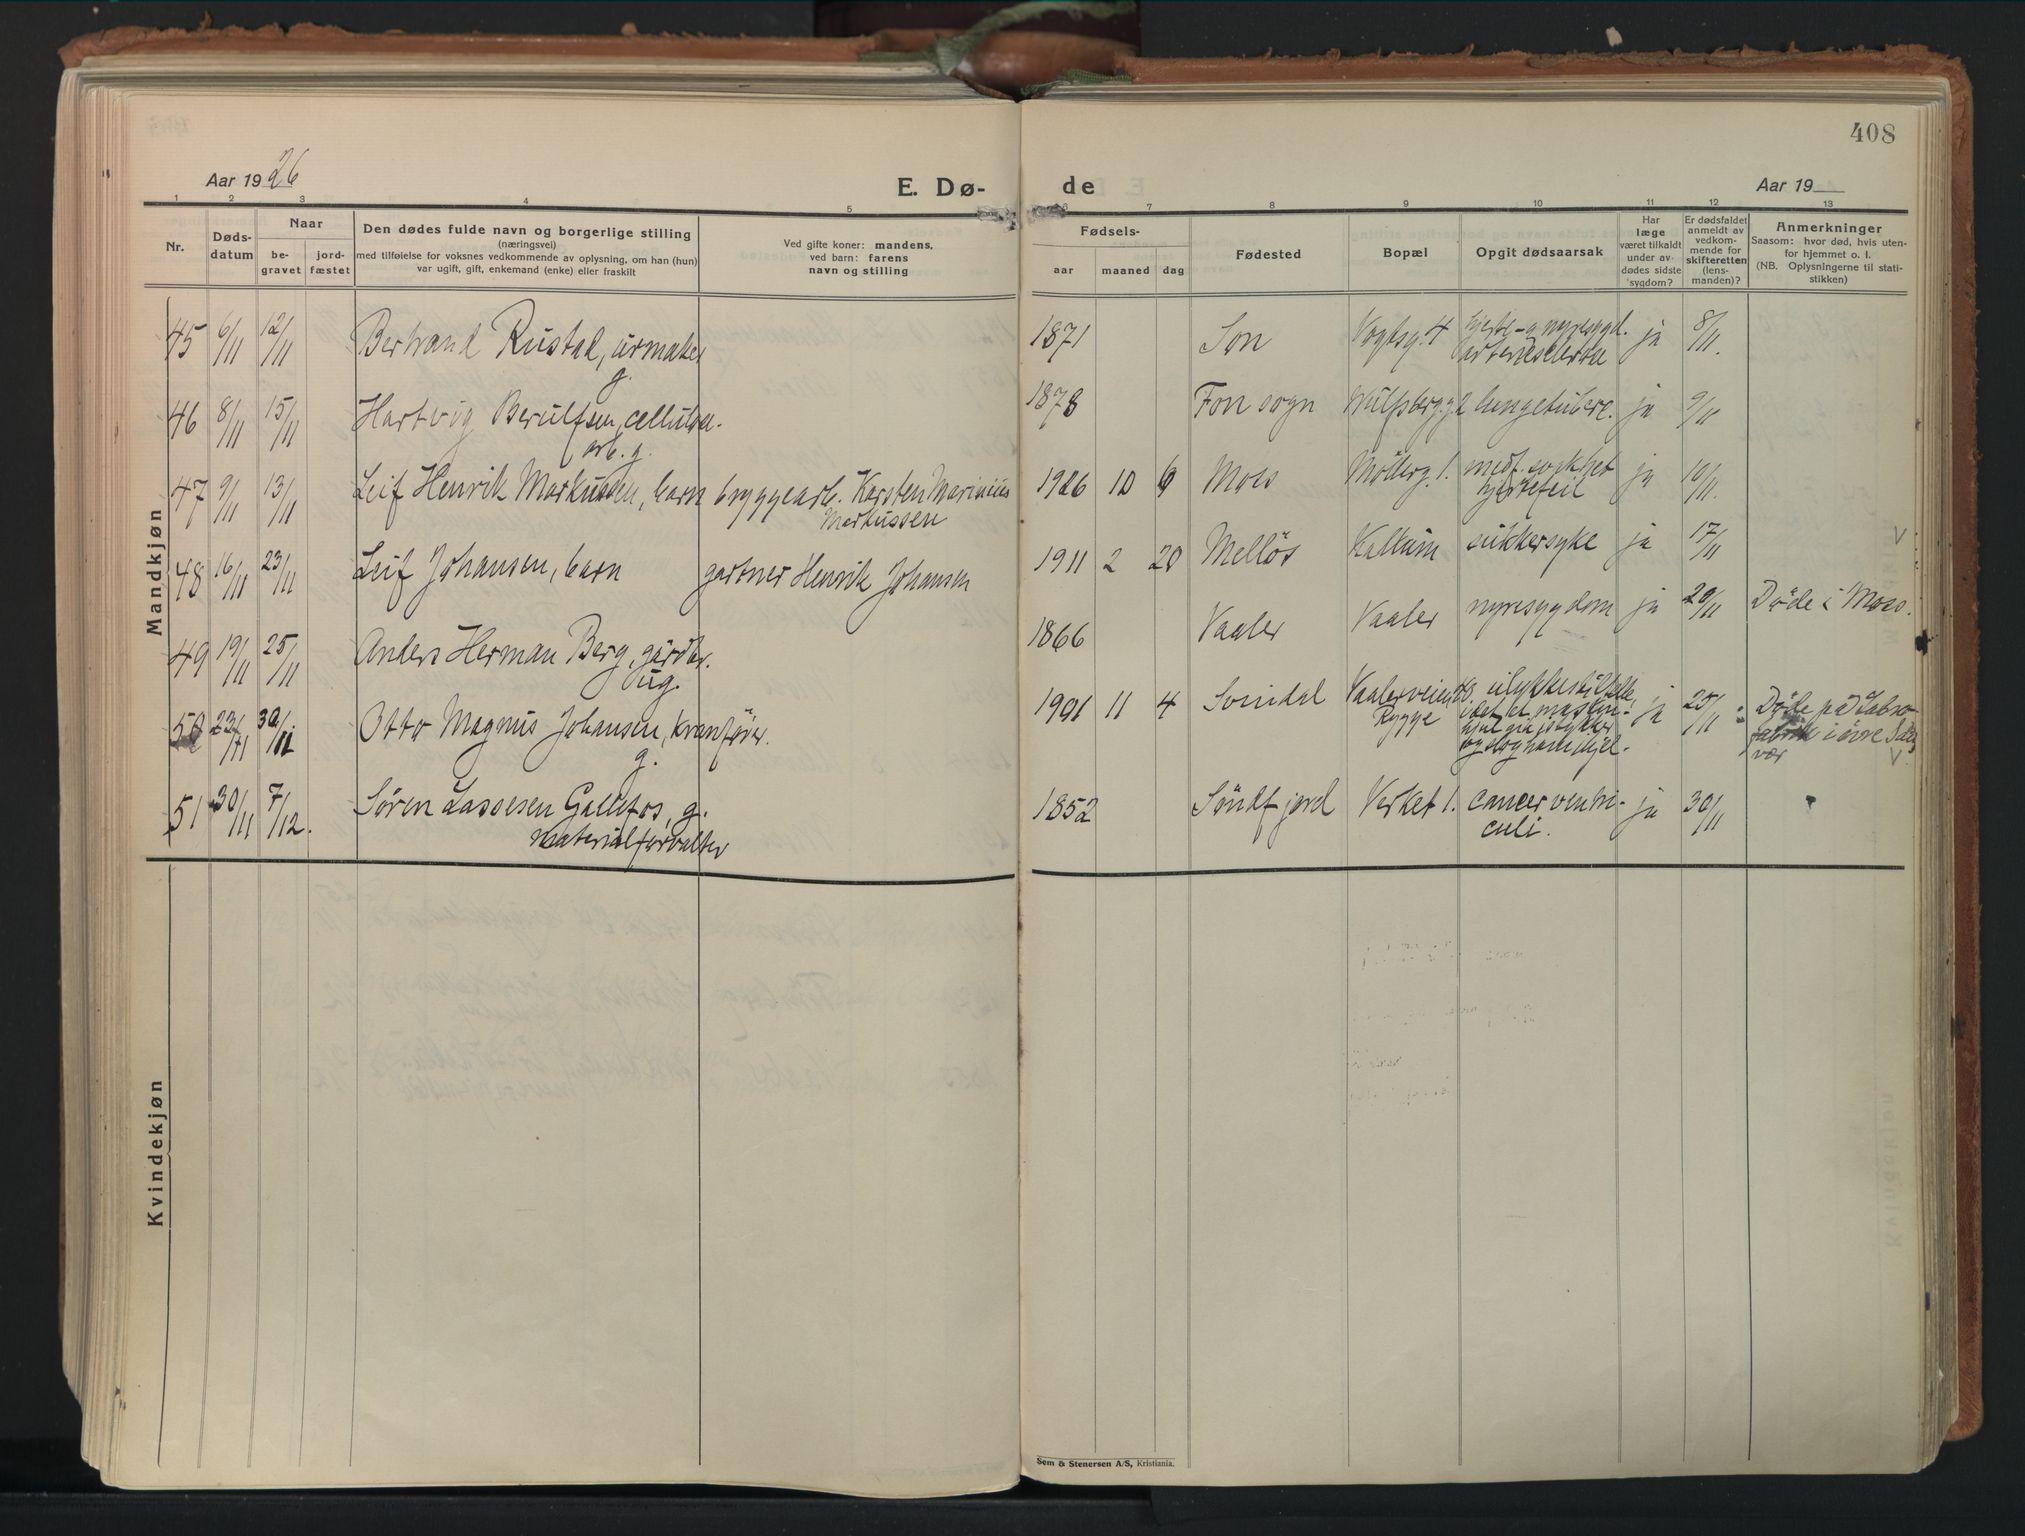 408
Aar 1926
E. Dø-
de
Aar 19
1 2 3 4 5
6 7 8 9 10 11 12 13
Nr.
Døds-
datum
Naar
be-
gravet
jord-
fæstet
Den dødes fulde navn og borgerlige stilling
(næringsvei)
med tilføielse for voksnes vedkommende av oplysning, om han (hun)
var ugift, gift, enkemand (enke) eller fraskilt
Ved gifte koner: mandens,
ved barn: farens
navn og stilling
Fødsels-
aar
maaned
dag
Fødested
Bopæl
Opgit dødsaarsak
Har
læge
været tilkaldt
under av-
dødes sidste
sygdom?
Er dødsfaldet
anmeldt av
vedkom-
mende for
skifteretten
(lens-
manden)?
Anmerkninger
Saasom: hvor død, hvis uten-
for hjemmet o. l.
(NB. Oplysningerne til stati-
stikken)
Mandkjøn
45 6/11 12/11 Bertrand Rustad, urmaker
g.
1871 Son Vogtsg. 4 hjerte- og nyresygd. ja 8/11.
arteriesclerose
46 8/11 15/11 Hartvig Berulfsen, cellulose-
arb. g.
1878 Fon sogn Wulfsbergg. 2 lungetuberc. ja 9/11
47 9/11 13/11 Leif Henrik Markussen, barn bryggearb. Karsten Marinius
Markussen
1926 10 6 Moss Møllerg. 1. medf. svakhet ja 10/11.
hjertefeil
48 16/11 23/11 Leif Johansen, barn gartner Henrik Johansen
1911 2 20 Melløs Kallum sukkersyke ja 17/11
49 19/11 25/11 Anders Herman Berg, gårdbr.
ug.
1866 Vaaler Vaaler nyresygdom ja 20/11 Døde i Moss.
50 23/11 30/11 Otto Magnus Johansen, kranfører.
g.
1901 11 4 Soindal Vaalerveien
Rygge
ulykkestilfelle
idet et maskin-
hjul gik i stykker
og slog ham ihjel.
ja 25/11 Døde på
fabrik i øvre
vær
51 30/11 7/12. Søren Lassesen Gallefos, g.
materialforvalter
1852 Søndfjord Verket 1. cancer ventri-
culi.
ja 30/11
Kvindekjøn
Sem & Stenersen A/S, Kristiania.